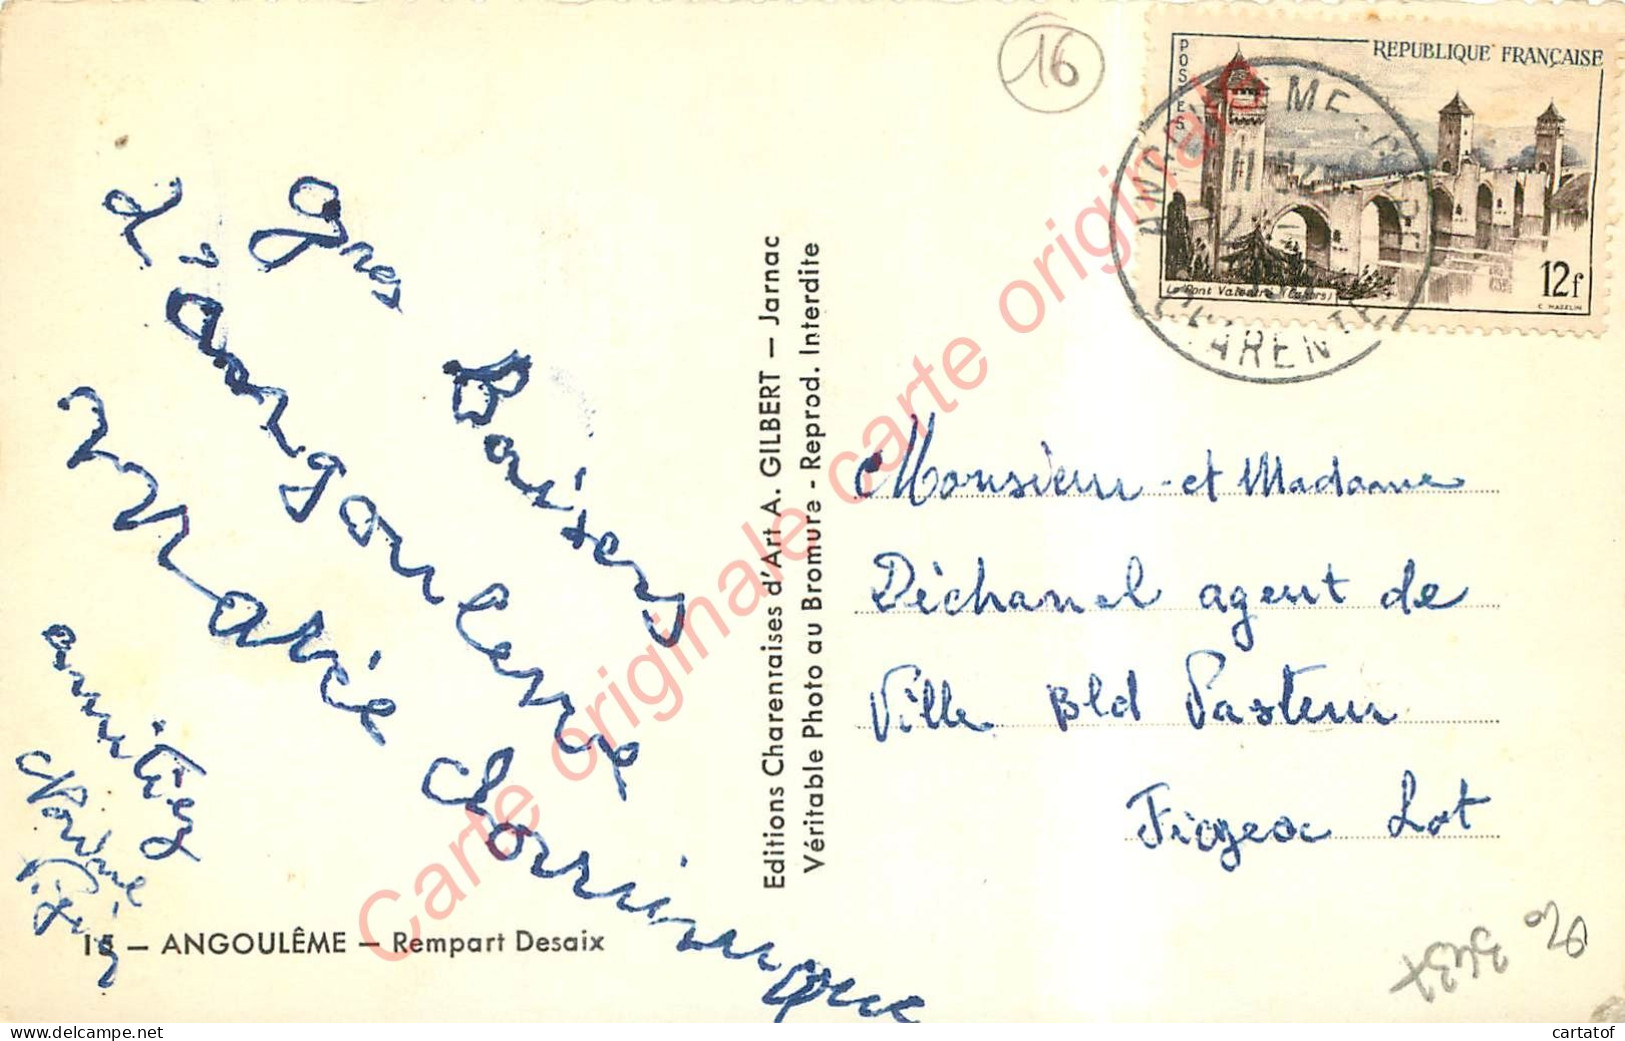 16
POSTES
REPUBLIQUE FRANÇAISE
Le Pont Valentré (Cahors)
12f
C. MAZELIN
CHARENTE
gros
Baisers
d'angoulême
Marie
amitiés
Editions Charentaises d'Art A. GILBERT — Jarnac
Véritable Photo au Bromure - Reprod. Interdite
Monsieur et Madame
Déchanel agent de
Ville Bld Pasteur
Figeac Lot
15 — ANGOULÊME — Rempart Desaix
Carte originale carte originale carte originale
cartatof